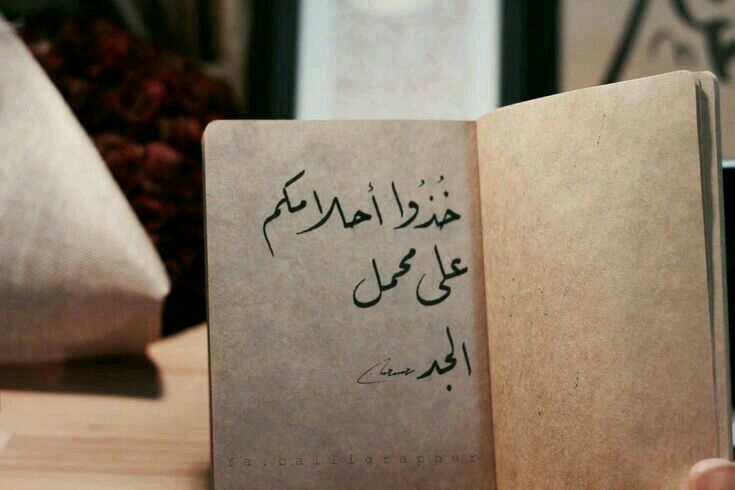 خُذُوا أحلامكم
على محمل
الجد
Ya.calligrapher